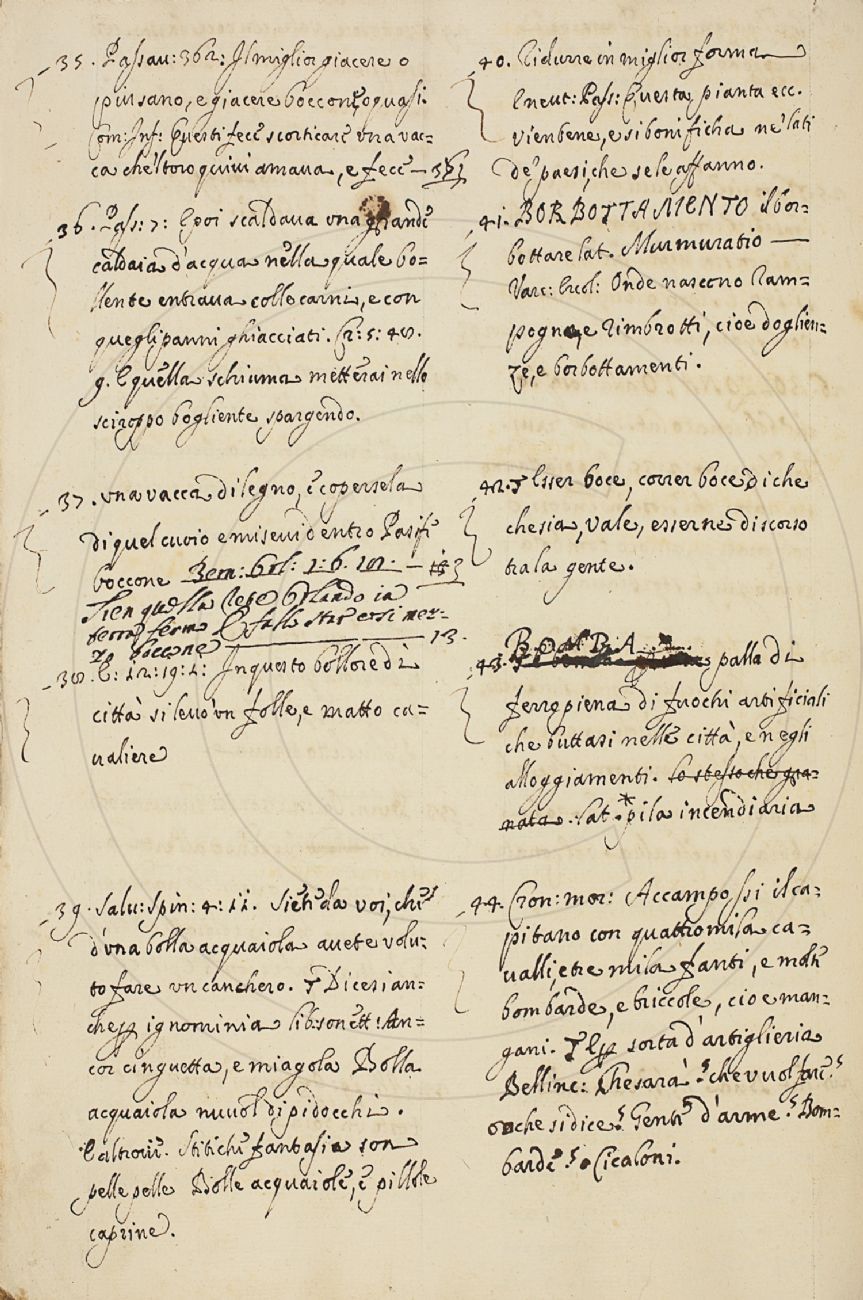 35. Passau: 362: Il miglior giacere o
piu sano, e giacere boccone, o quasi.
Com: Inf: Questi fece scorticare una vac=
ca che'l toro quivi amaua, e fece —
36. Pass: 7: E poi scaldaua una grande
caldaia d'acqua nella quale bo=
llente entraua colle carni, e con
quegli panni ghiacciati. Cr: 5: 48.
9. E quella schiuma metterai nello
sciroppo bogliente spargendo.
37. una vacca di legno, e copersela
di quel cuoio e misevi dentro Pasife
boccone Bern: Orl: 1: 6.
Tien quella lege Orlando in
terra ferma E fallo star cosi mez=
zo boccone — 13.
38. B: 12: 19: 1: In questo bollore di
città si levò un folle, e matto ca=
ualiere
39. Salu: Spin: 4: 11. Siete da voi, che
d'una bolla acquaiola avete volu=
to fare un canchero. § Dicesi an=
che ignominia lib: sonett: An=
cor cinguetta, e miagola Bolla
acquaiola nuuol di pidocchi.
E altroue. Stitiche fantasie son
pelle pelle Bolle acquaiole, e pillole
caprine.
40. Ridurre in miglior forma —
E neut: Pass: Questa pianta ecc.
vien bene, e si bonifica ne' lati
de' paesi, che sele affanno.
41. BORBOTTAMENTO il bor=
bottare lat. Murmuratio —
Varc: Ercol: Onde nascono Ram=
pogne, e rimbrotti, cioe doglien=
ze, e borbottamenti.
42. § Esser boce, correr boce di che
che sia, vale, esserne discorso
tra la gente.
43. BOMBA palla di
ferro piena di fuochi artificiali
che buttasi nelle città, e negli
alloggiamenti. lo stesso che gra=
nata. lat. * pila incendiaria
44. Cron: mor: Accampossi il ca=
pitano con quattromila ca=
ualli, e tre mila fanti, e molte
bombarde, e briccole, cioe man=
gani. § E sorta d'artiglieria
Bellinc: Che sarà? che vuol fare?
o che si dice? Gente d'arme? Bom=
barde? o Cicaloni.